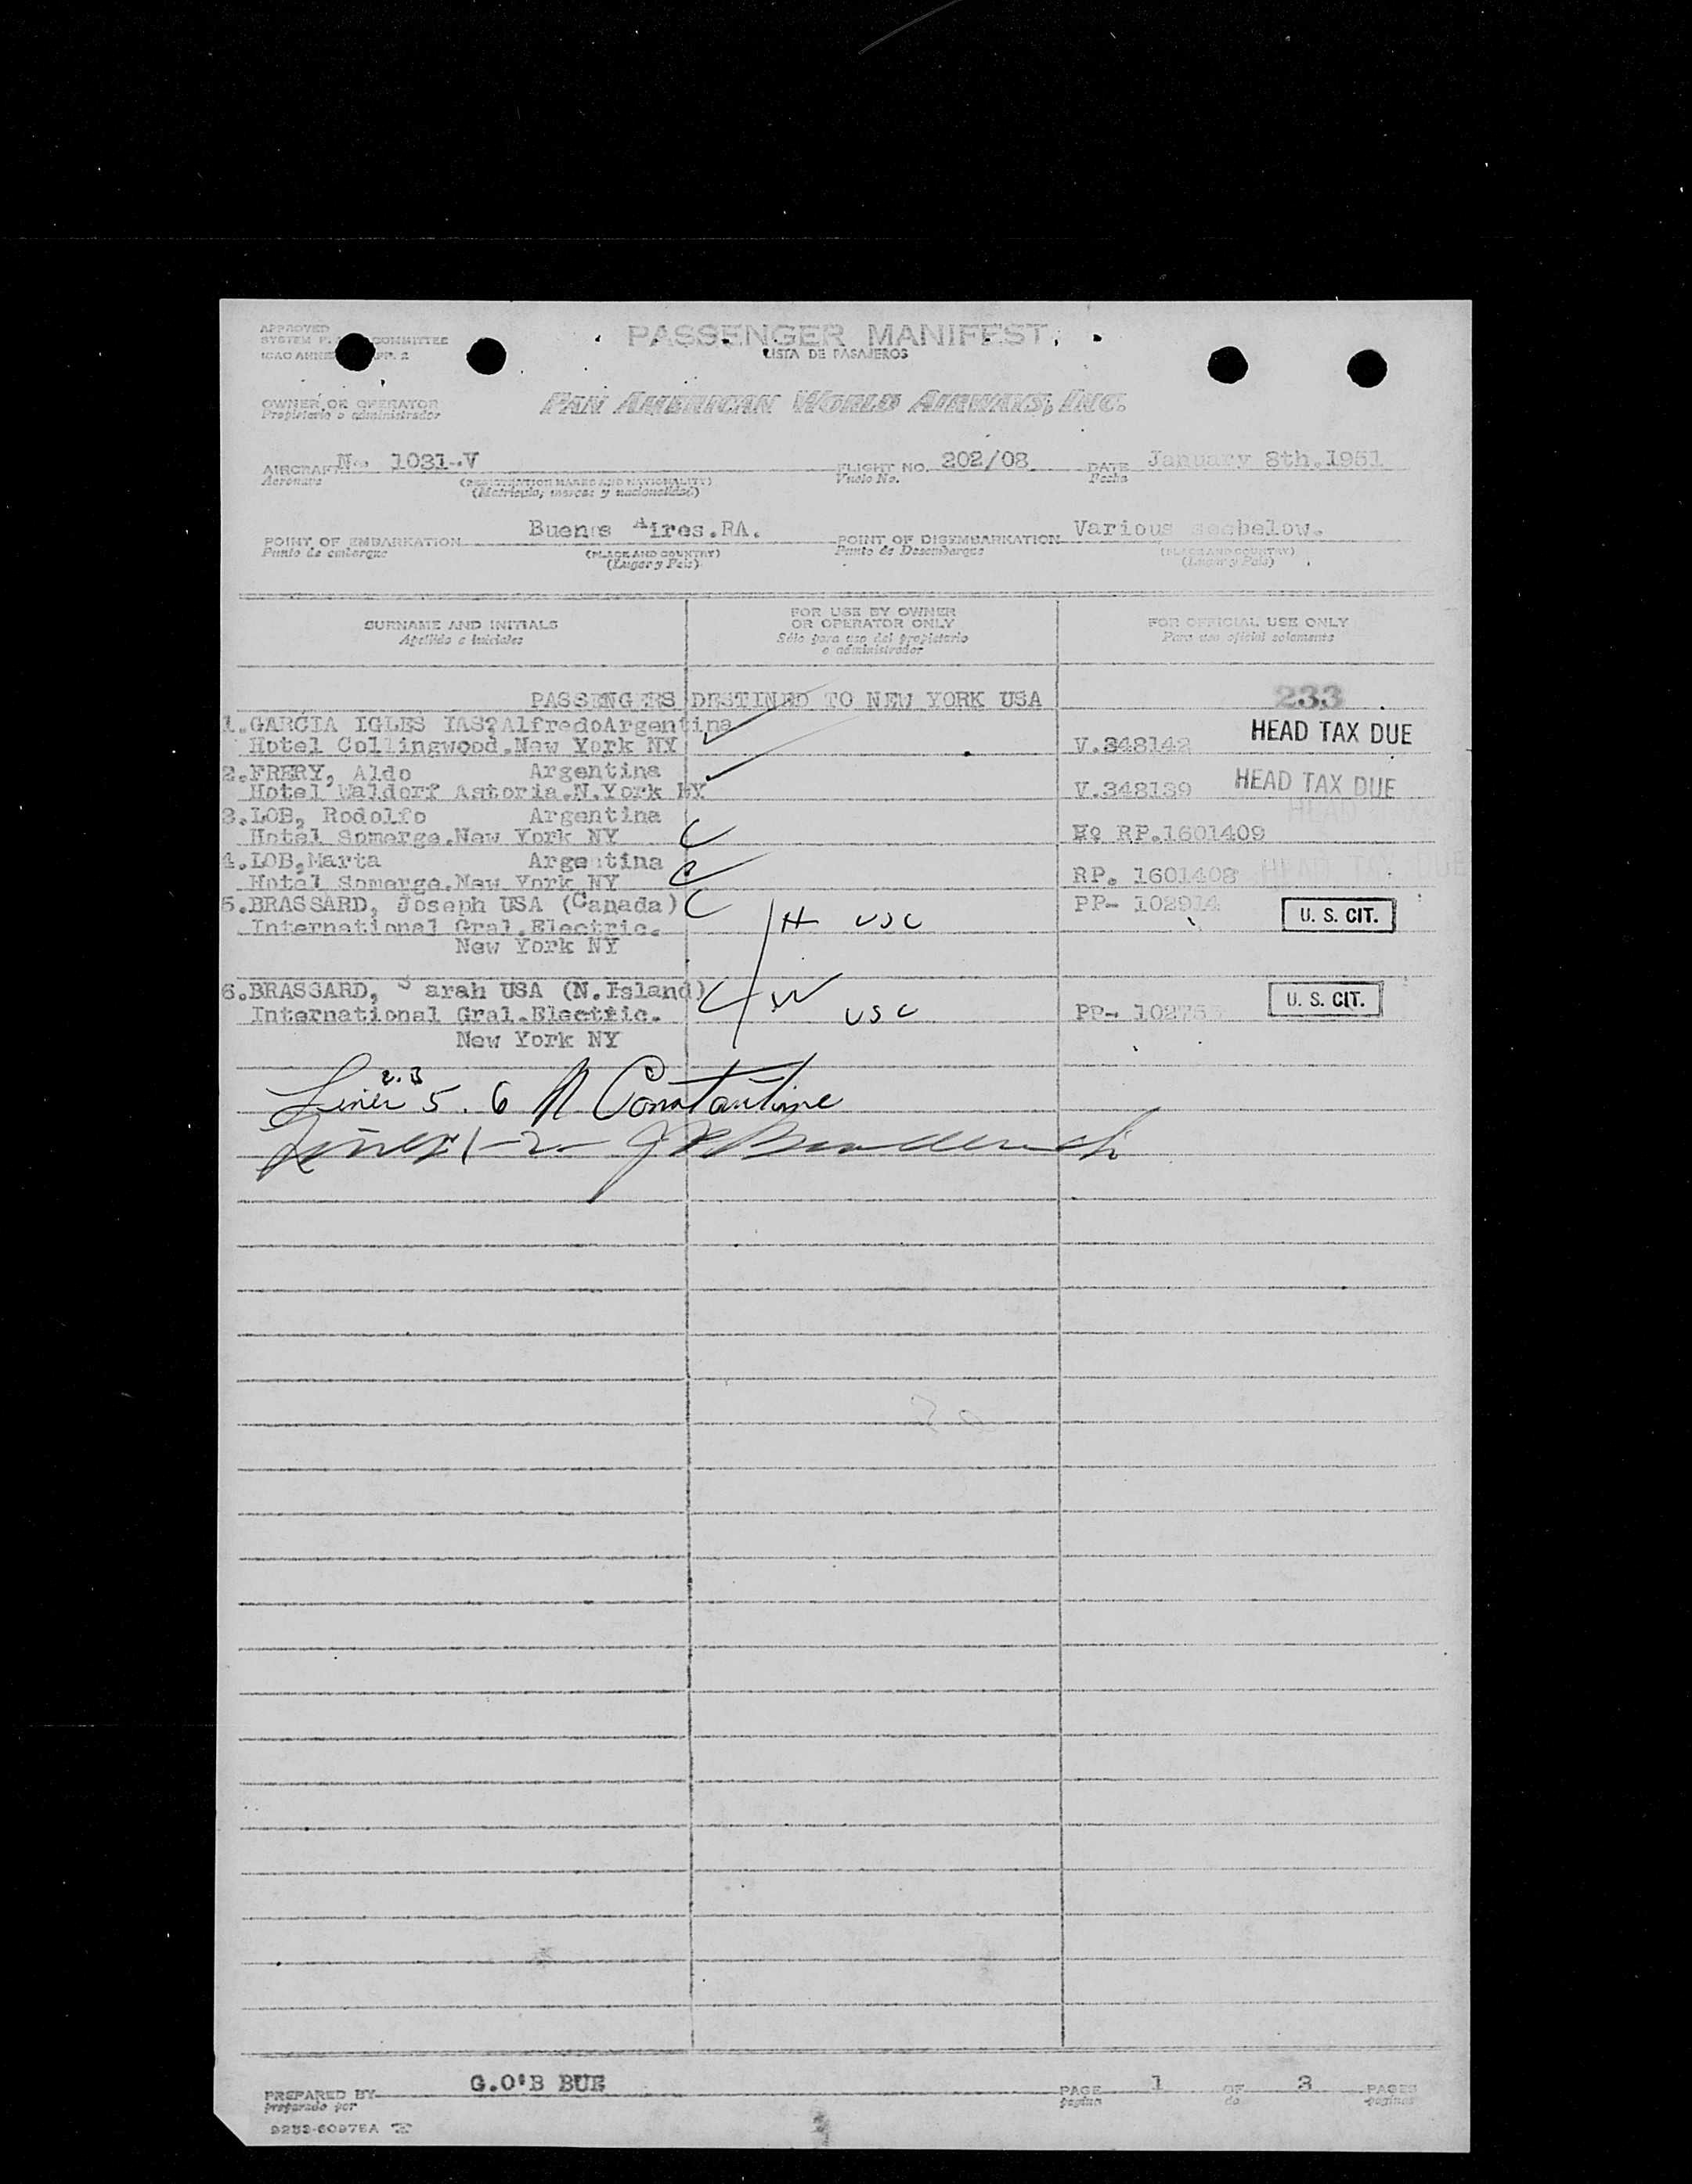 APPROVED
SYSTEM F. COMMITTEE
ICAO ANNE PP. 2
PASSENGER MANIFEST
LISTA DE PASAJEROS
OWNER OR OPERATOR
Propietario o administrador
PAN AMERICAN WORLD AIRWAYS, INC.
AIRCRAFT N. 1031-V FLIGHT NO. 202/08 DATE January 8th.1951
Aeronave (REGISTRATION MARKS AND NATIONALITY) Vuelo No. Fecha
(Matrícula, marcas y nacionalidad)
POINT OF EMBARKATION Buenos Aires.RA. POINT OF DISEMBARKATION Various seebelow.
Punto de embarque (PLACE AND COUNTRY) Punto de Desembarque (PLACE AND COUNTRY)
(Lugar y País) (Lugar y País)
SURNAME AND INITIALS
Apellido e Iniciales
FOR USE BY OWNER
OR OPERATOR ONLY
Sólo para uso del propietario
o administrador
FOR OFFICIAL USE ONLY
Para uso oficial solamente
PASSENGERS DESTINED TO NEW YORK USA 233
1.GARCIA IGLES IAS?AlfredoArgentina HEAD TAX DUE
Hotel Collingwood.New York NY V.348142
2.FRERY, Aldo Argentina HEAD TAX DUE
Hotel Waldorf Astoria.N.York NY V.348139
HEAD TAX
3.LOB, Rodolfo Argentina
Hotel Somerge.New York NY Nº RP.1601409
4.LOB,Marta Argentina
Hotel Somerge.New York NY RP. 1601408 HEAD TAX DUE
5.BRASSARD, Joseph USA (Canada) PP- 102914 U. S. CIT.
International Gral.Electric. H USC
New York NY
6.BRASSARD, Sarah USA (N.Island) W U. S. CIT.
International Gral.Electric. USC PP- 10275
New York NY
2.3
Lines 5. 6 N Constantine
Lines 1-2-
PREPARED BY G.O'B BUE PAGE 1 OF 3 PAGES
preparado por página de páginas
9253-60975A